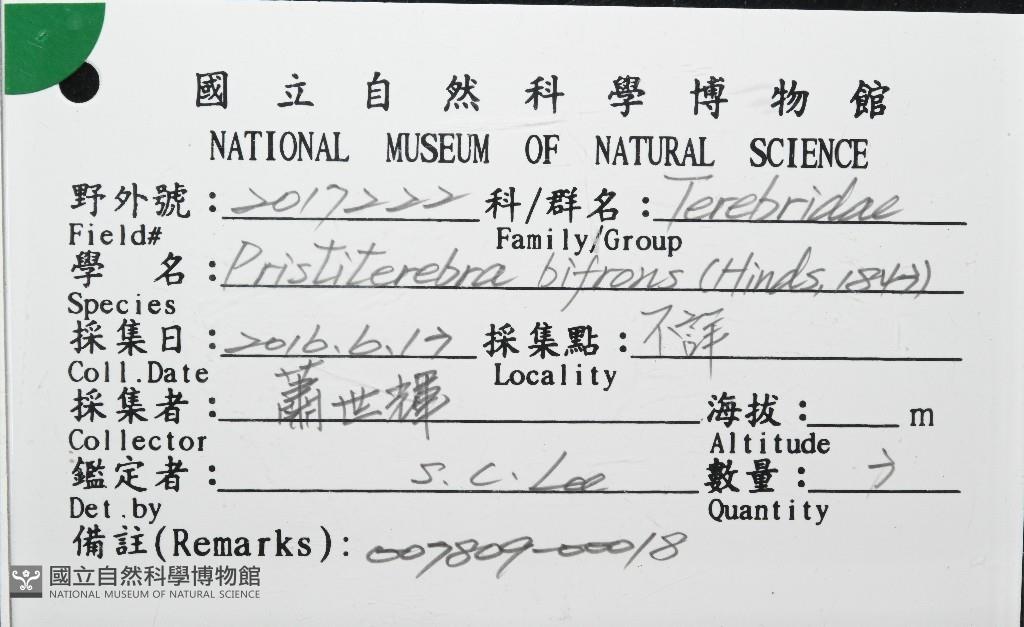 國立自然科學博物館
NATIONAL MUSEUM OF NATURAL SCIENCE
野外號：2017222 科/群名：Terebridae
Field# Family/Group
學 名：Pristiterebra bifrons (Hinds, 1847)
Species
採集日：2016.6.17 採集點：不詳
Coll.Date Locality
採集者：蕭世輝 海拔： m
Collector Altitude
鑑定者：S. C. Lee 數量：7
Det.by Quantity
備註(Remarks)：007809-00018
國立自然科學博物館
NATIONAL MUSEUM OF NATURAL SCIENCE